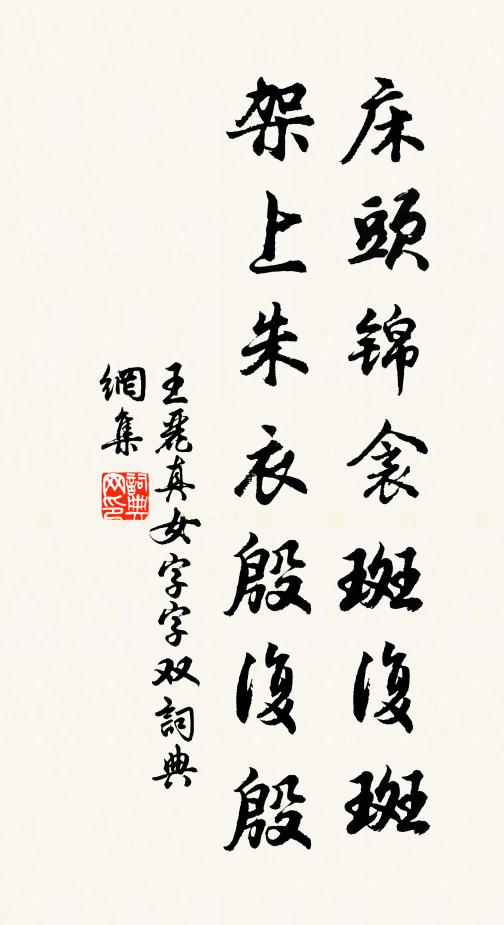 床頭錦衾斑復斑
架上朱衣殷復殷
王麗真女字字双詞典
網集
詞典
网印